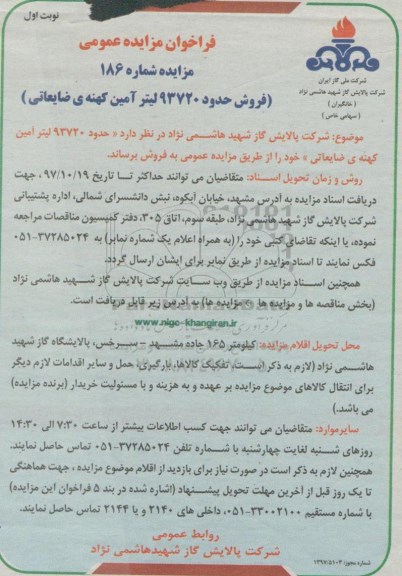 نوبت اول
فراخوان مزایده عمومی
مزایده شماره ۱۸۶
(فروش حدود ۹۳۷۲۰ لیتر آمین کهنه ی ضایعاتی)
شرکت ملی گاز ایران
شرکت پالایش گاز شهید هاشمی نژاد
(خانگیران)
(سهامی خاص)
موضوع: شرکت پالایش گاز شهید هاشمی نژاد در نظر دارد « حدود ۹۳۷۲۰ لیتر آمین
کهنه ی ضایعاتی » خود را از طریق مزایده عمومی به فروش برساند.
روش و زمان تحویل اسناد: متقاضیان می توانند حداکثر تا تاریخ ۹۷/۱۰/۱۹ ، جهت
دریافت اسناد مزایده به آدرس مشهد، خیابان آبکوه، نبش دانشسرای شمالی، اداره پشتیبانی
شرکت پالایش گاز شهید هاشمی نژاد، طبقه سوم، اتاق ۳۰۵، دفتر کمیسیون مناقصات مراجعه
نموده، یا اینکه تقاضای کتبی خود را (به همراه اعلام یک شماره نمابر) به ۳۷۲۸۵۰۲۴-۰۵۱
فکس نمایند تا اسناد مزایده از طریق نمابر برای ایشان ارسال گردد.
همچنین اسناد مزایده از طریق وب سایت شرکت پالایش گاز شهید هاشمی نژاد
(بخش مناقصه ها و مزایده ها - مزایده ها) به آدرس زیر قابل دریافت است.
www.nigc-khangiran.ir
محل تحویل اقلام مزایده: کیلومتر ۱۶۵ جاده مشهد - سرخس، پالایشگاه گاز شهید
هاشمی نژاد (لازم به ذکر است، تفکیک کالاها، بارگیری، حمل و سایر اقدامات لازم دیگر
برای انتقال کالاهای موضوع مزایده بر عهده و به هزینه و با مسئولیت خریدار (برنده مزایده)
می باشد.)
سایر موارد: متقاضیان می توانند جهت کسب اطلاعات بیشتر از ساعت ۷:۳۰ الی ۱۴:۳۰
روزهای شنبه لغایت چهارشنبه با شماره تلفن ۳۷۲۸۵۰۲۴-۰۵۱ تماس حاصل نمایند.
همچنین لازم به ذکر است در صورت نیاز برای بازدید از اقلام موضوع مزایده ، جهت هماهنگی
تا یک روز قبل از آخرین مهلت تحویل پیشنهاد (اشاره شده در بند ۵ فراخوان این مزایده)
با شماره مستقیم ۳۳۰۰۲۱۰۰-۰۵۱، داخلی های ۲۱۴۰ و یا ۲۱۴۴ تماس حاصل نمایند.
روابط عمومی
شرکت پالایش گاز شهید هاشمی نژاد
شماره مجوز: ۱۳۹۷/۵۱۰۳